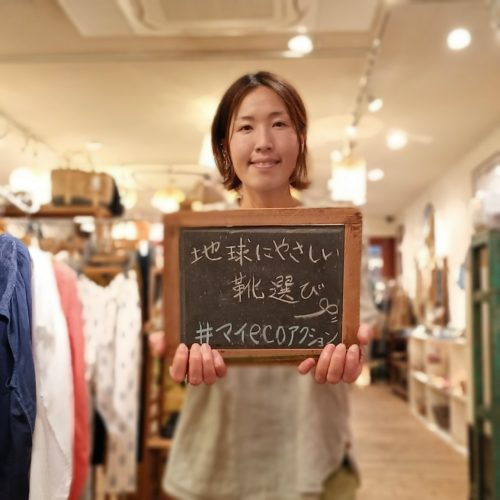 地球にやさしい
靴選び
#マイecoアクション